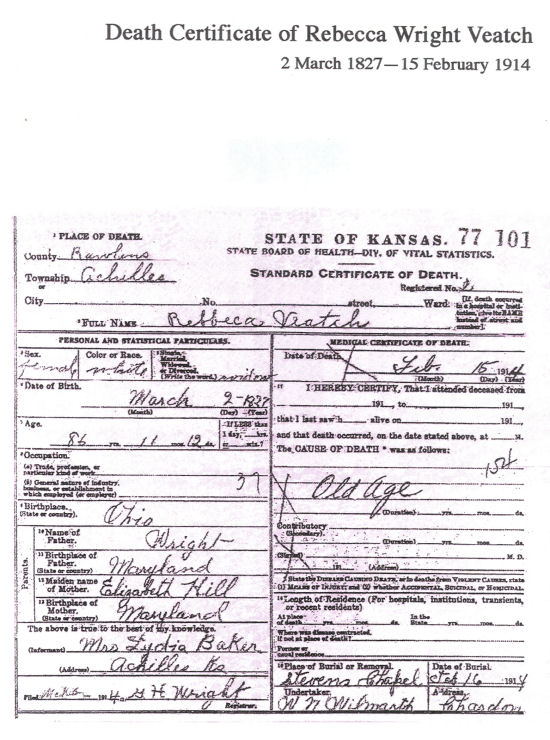 Death Certificate of Rebecca Wright Veatch
2 March 1827—15 February 1914
¹ PLACE OF DEATH.
County Rawlins
Township Achilles
or
City
STATE OF KANSAS. 77 101
STATE BOARD OF HEALTH—DIV. OF VITAL STATISTICS.
STANDARD CERTIFICATE OF DEATH.
Registered No.
No. street, Ward:
[If, death occurred in a hospital or institution, give its NAME instead of street and number].
²FULL NAME Rebbeca Veatch
PERSONAL AND STATISTICAL PARTICULARS.
³Sex. female
Color or Race. white
Single, Married, Widowed, or Divorced. (Write the word.) widow
⁶Date of Birth.
March 2-1827
(Month) (Day) (Year)
⁷Age.
86 yrs. 11 mos. 12 ds.
If LESS than 1 day, hrs. or min.?
⁸Occupation.
(a) Trade, profession, or particular kind of work
(b) General nature of industry, business, or establishment in which employed (or employer)
37
⁹Birthplace.
(State or country). Ohio
Parents.
¹⁰Name of Father. Wright
¹¹Birthplace of Father. (State or country) Maryland
¹²Maiden name of Mother. Elizabeth Hill
¹³Birthplace of Mother. (State or country) Maryland
The above is true to the best of my knowledge.
(Informant) Mrs Lydia Baker
(Address) Achilles Ks
Filed 1914 G H Wright
Registrar.
MEDICAL CERTIFICATE OF DEATH.
Date of Death
Feb. 15 1914
(Month) (Day) (Year)
I HEREBY CERTIFY, That I attended deceased from
191 , to 191 ,
that I last saw h alive on 191 ,
and that death occurred, on the date stated above, at M.
The CAUSE OF DEATH * was as follows:
154
Old Age
(Duration) yrs. mos. ds.
Contributory
(Secondary).
(Duration) yrs. mos. ds.
(Signed) M. D.
191 (Address)
State the DISEASE CAUSING DEATH, or in deaths from VIOLENT CAUSES, state (1) MEANS OF INJURY; and (2) whether ACCIDENTAL, SUICIDAL, or HOMICIDAL.
Length of Residence (For hospitals, institutions, transients, or recent residents)
At place of death yrs. mos. ds. In the State yrs. mos. ds.
Where was disease contracted, if not at place of death?
Former or usual residence
Place of Burial or Removal. Date of Burial.
Stevens Chapel Feb 16 1914
Undertaker. Address.
W N Wilmarth Chardon